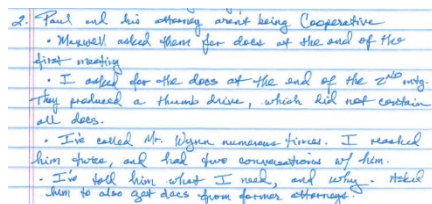 2. Paul and his attorney aren't being Cooperative
• Maxwell asked them for docs at the end of the
first meeting
• I asked for the docs at the end of the 2ND mtg.
They produced a thumb drive, which did not contain
all docs.
• I've called Mr. Wynn numerous times. I reached
him twice, and had two conversations w/ him.
• I've told him what I need, and why. Asked
him to also get docs from former attorneys.